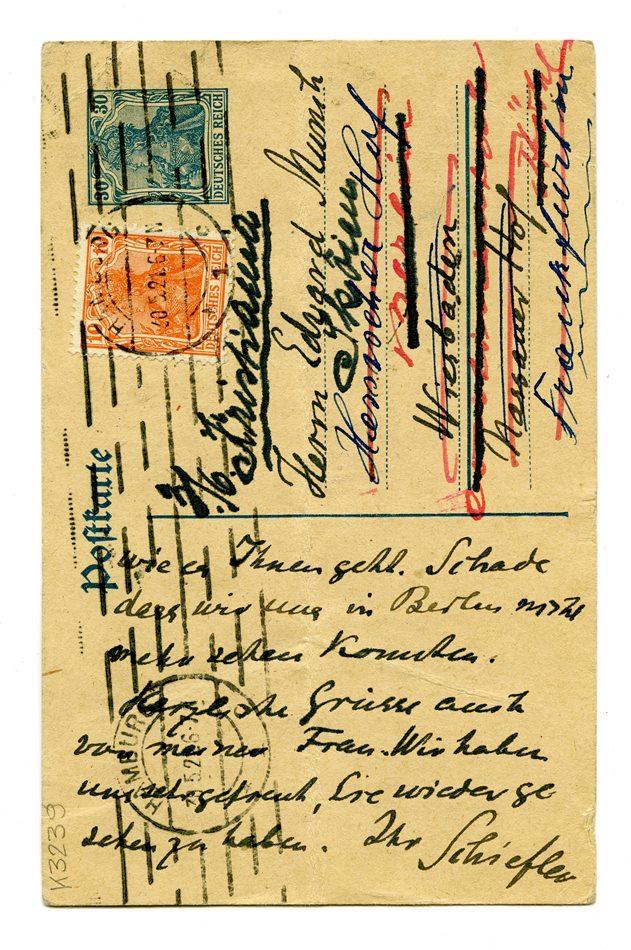 30 30
DEUTSCHES REICH
10 10
DEUTSCHES REICH
HAMBURG
20.5.21.6-7 N
Postkarte
Herrn Edvard Munch
Skøien
Kristiania
Hof
Berlin
Wiesbaden
Nassauer Hof
Frankfurt
wie es Ihnen geht. Schade
dass wir uns in Berlin nicht
mehr sehen konnten.
Herzliche Grüsse auch
von meiner Frau. Wir haben
uns sehr gefreut, Sie wieder ge
sehen zu haben. Ihr Schiefler
HAMBURG
K3239